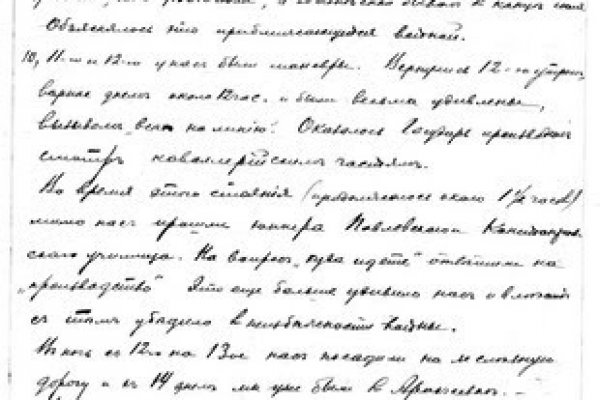 Объяснялось это приближающейся войной.
10, 11-го и 12-го у нас были маневры. Вернулись 12-го утром,
вернее днем около 12 час. и были весьма удивлены,
вызовом "всех на линию". Оказалось Государь производил
смотр кавалерийским частям.
Во время этого стояния (продолжалось около 1½ часов)
мимо нас прошли юнкера Павловского
ского училища. На вопрос "куда идете" отвечали на
"производство" Это еще больше удивило нас и вместе
с тем убедило в неизбежности войны.
В ночь с 12го на 13ое нас посадили на железную
дорогу и 14 днем мы уже были в